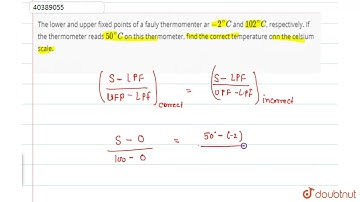 40389055
The lower and upper fixed points of a fauly thermomenter ar −2°C and 102°C, respectively. If
the thermometer reads 50°C on this thermometer, find the correct temperature onn the celsium
scale.
(S - LPF / UFP - LPf) correct = (S - LPF / UPF - LPF) incorrect
S - 0 / 100 - 0 = 50° - (-2)
doubtnut